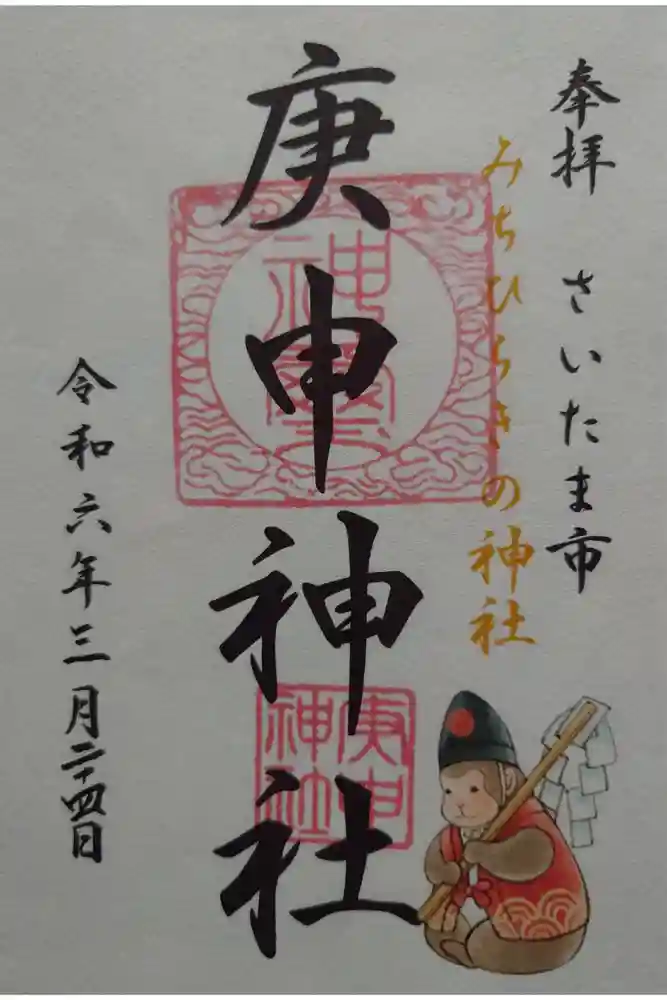 奉拝 さいたま市
みちひらきの神社
庚申神社
庚申神社
令和六年三月二十四日